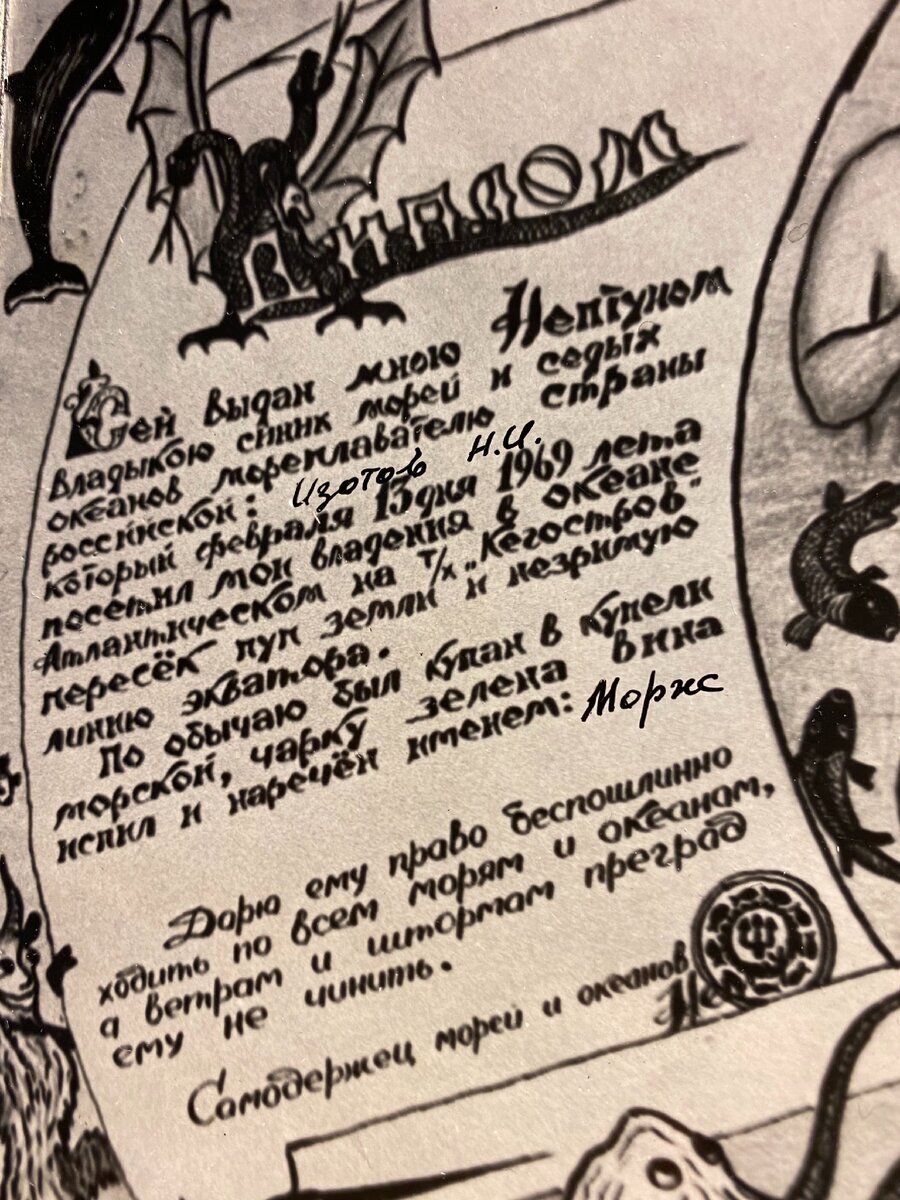 Диплом
Сей выдан мною Нептуном
владыкою синих морей и седых
океанов мореплавателю страны
российской: Изотов Н.И.
который февраля 13 дня 1969 лета
посетил мои владения в океане
Атлантическом на т/х „Кегостров"
пересёк пуп земли и незримую
линию экватора.
По обычаю был купан в купели
морской, чарку зелена вина
испил и наречён именем: Морж
Дарю ему право беспошлинно
ходить по всем морям и океанам,
а ветрам и штормам преград
ему не чинить.
Самодержец морей и океанов